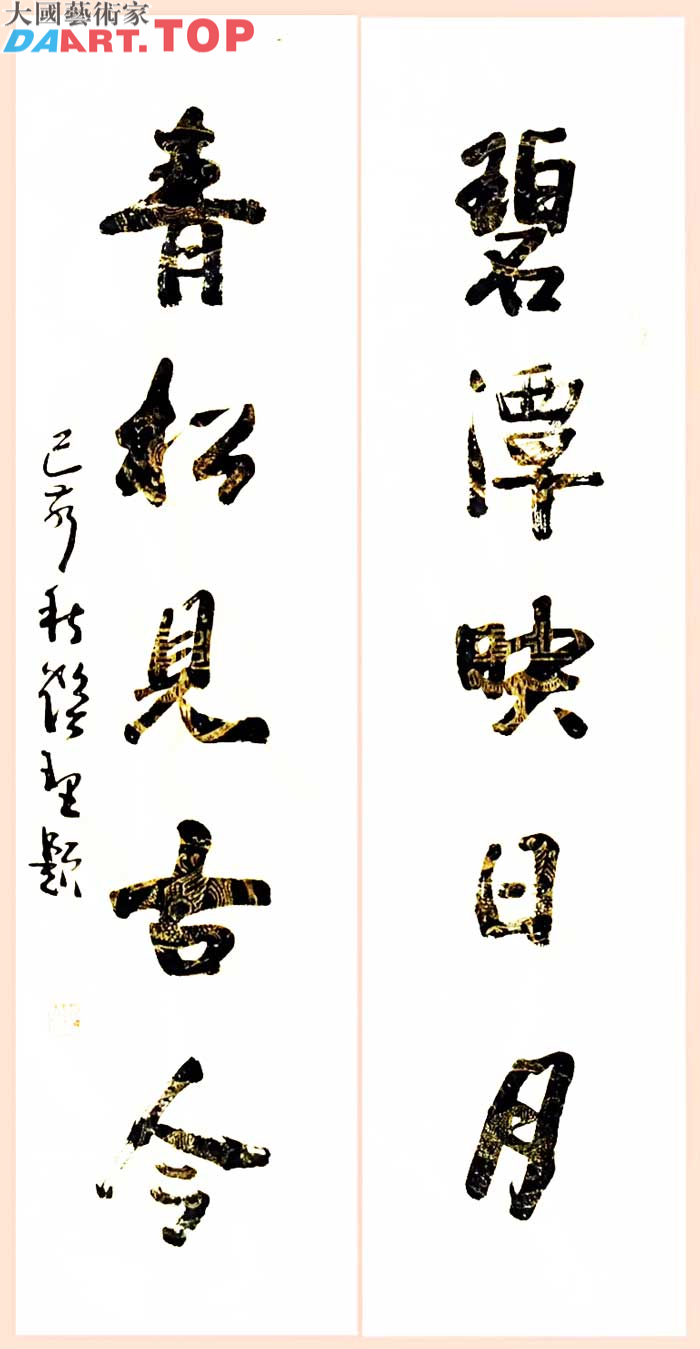 大國藝術家
DAART.TOP
碧潭映日月
青松見古今
己亥秋啓聖題